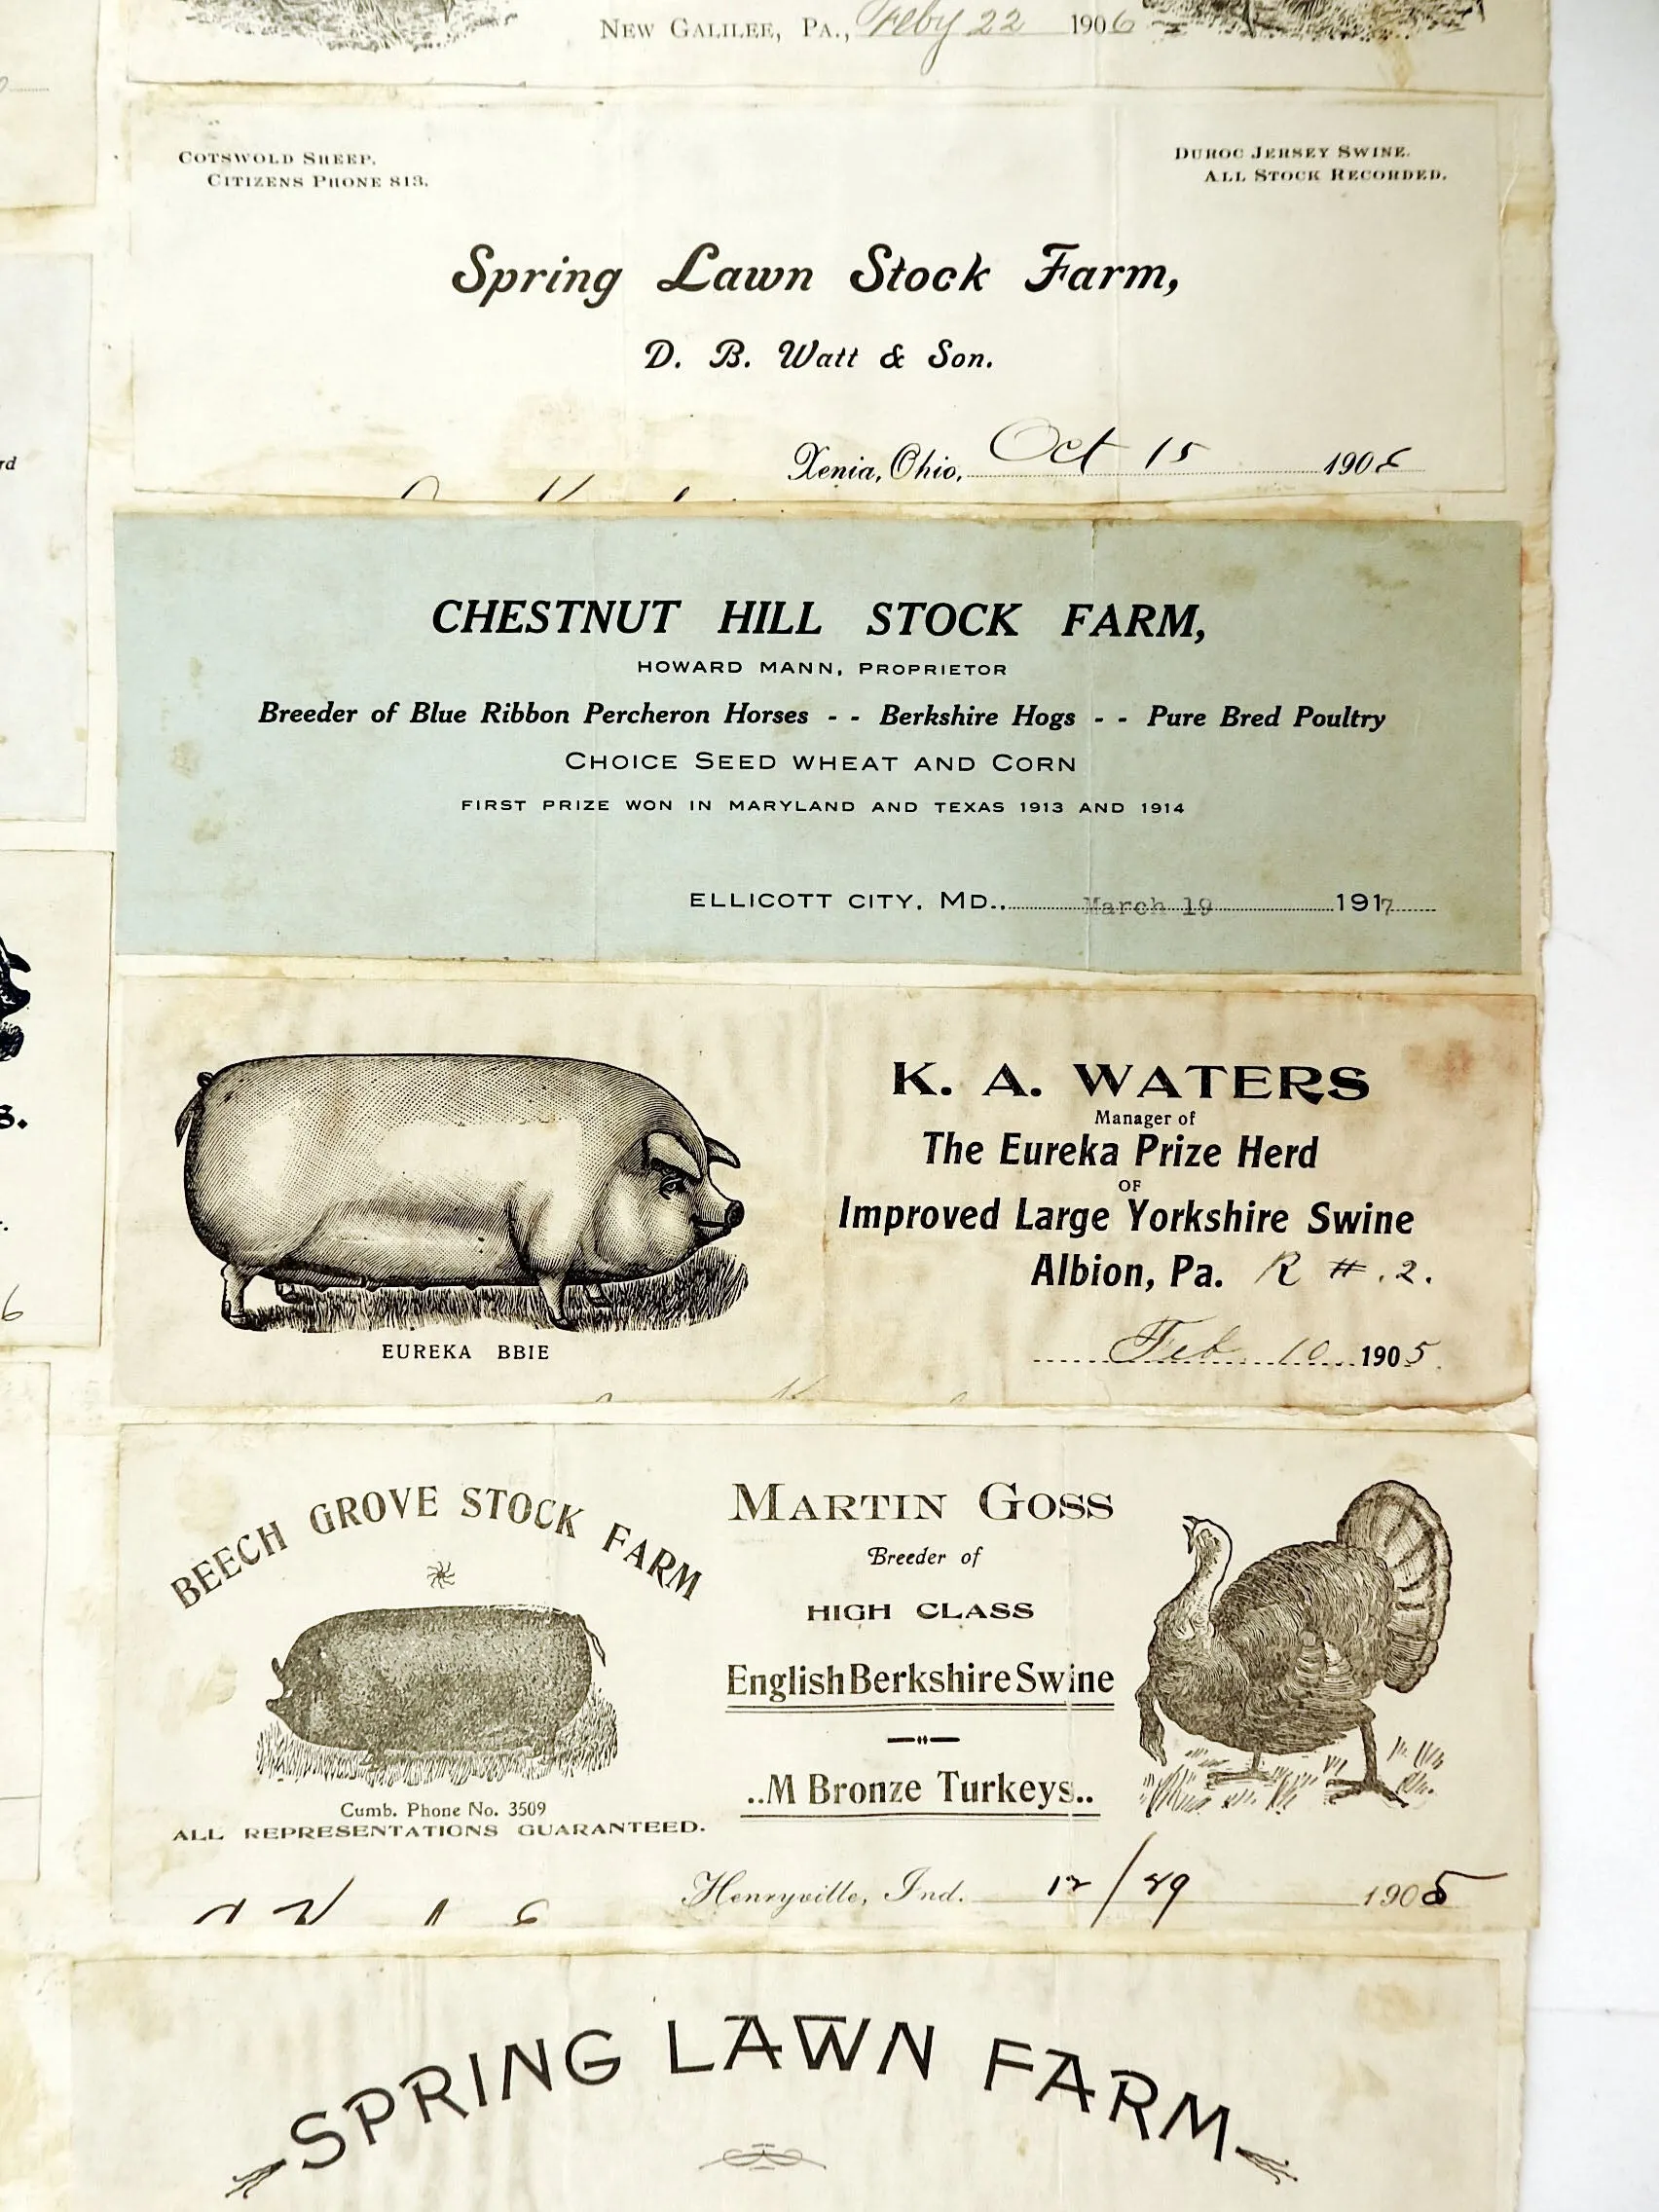 New Galilee, Pa., Feby 22 1906
Cotswold Sheep.
Citizens Phone 813.
Duroc Jersey Swine.
All Stock Recorded.
Spring Lawn Stock Farm,
D. B. Watt & Son.
Xenia, Ohio, Oct 15 190
rd
CHESTNUT HILL STOCK FARM,
HOWARD MANN, PROPRIETOR
Breeder of Blue Ribbon Percheron Horses - - Berkshire Hogs - - Pure Bred Poultry
CHOICE SEED WHEAT AND CORN
FIRST PRIZE WON IN MARYLAND AND TEXAS 1913 AND 1914
ELLICOTT CITY, MD., March 19 1917
K. A. WATERS
Manager of
The Eureka Prize Herd
OF
Improved Large Yorkshire Swine
Albion, Pa. R #.2.
Feb 10 1905.
EUREKA BBIE
s.
6
BEECH GROVE STOCK FARM
Cumb. Phone No. 3509
ALL REPRESENTATIONS GUARANTEED.
MARTIN GOSS
Breeder of
HIGH CLASS
English Berkshire Swine
..M Bronze Turkeys..
Henryville, Ind. 12/29 1905
SPRING LAWN FARM